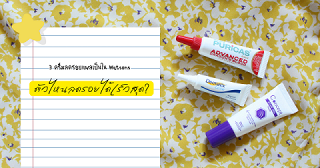 3 ครีมลดรอยแผลเป็นใน Watsons
ตัวไหนลดรอยได้เร็วสุด?
PURICAS
ADVANCED